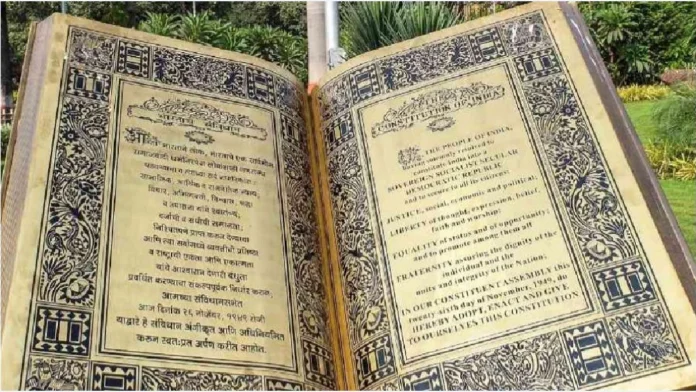 भारताचे संविधान
आम्ही भारताचे लोक, भारताचे एक सार्वभौम
समाजवादी धर्मनिरपेक्ष लोकशाही गणराज्य
घडविण्याचा व त्याच्या सर्व नागरिकांस:
सामाजिक, आर्थिक व राजनैतिक न्याय;
विचार, अभिव्यक्ती, विश्वास, श्रद्धा
व उपासना यांचे स्वातंत्र्य;
दर्जाची व संधीची समानता;
निश्चितपणे प्राप्त करून देण्याचा
आणि त्या सर्वांमध्ये व्यक्तीची प्रतिष्ठा
व राष्ट्राची एकता आणि एकात्मता
यांचे आश्वासन देणारी बंधुता
प्रवर्धित करण्याचा संकल्पपूर्वक निर्धार करून;
आमच्या संविधानसभेत
आज दिनांक २६ नोव्हेंबर, १९४९ रोजी
याद्वारे हे संविधान अंगीकृत आणि अधिनियमित
करून स्वतःप्रत अर्पण करीत आहोत.
CONSTITUTION OF INDIA
WE, THE PEOPLE OF INDIA,
having solemnly resolved to
constitute India into a
SOVEREIGN SOCIALIST SECULAR
DEMOCRATIC REPUBLIC
and to secure to all its citizens:
JUSTICE, social, economic and political;
LIBERTY of thought, expression, belief,
faith and worship;
EQUALITY of status and of opportunity;
and to promote among them all
FRATERNITY assuring the dignity of the
individual and the
unity and integrity of the Nation;
IN OUR CONSTITUENT ASSEMBLY this
twenty sixth day of November, 1949, do
HEREBY ADOPT, ENACT AND GIVE
TO OURSELVES THIS CONSTITUTION